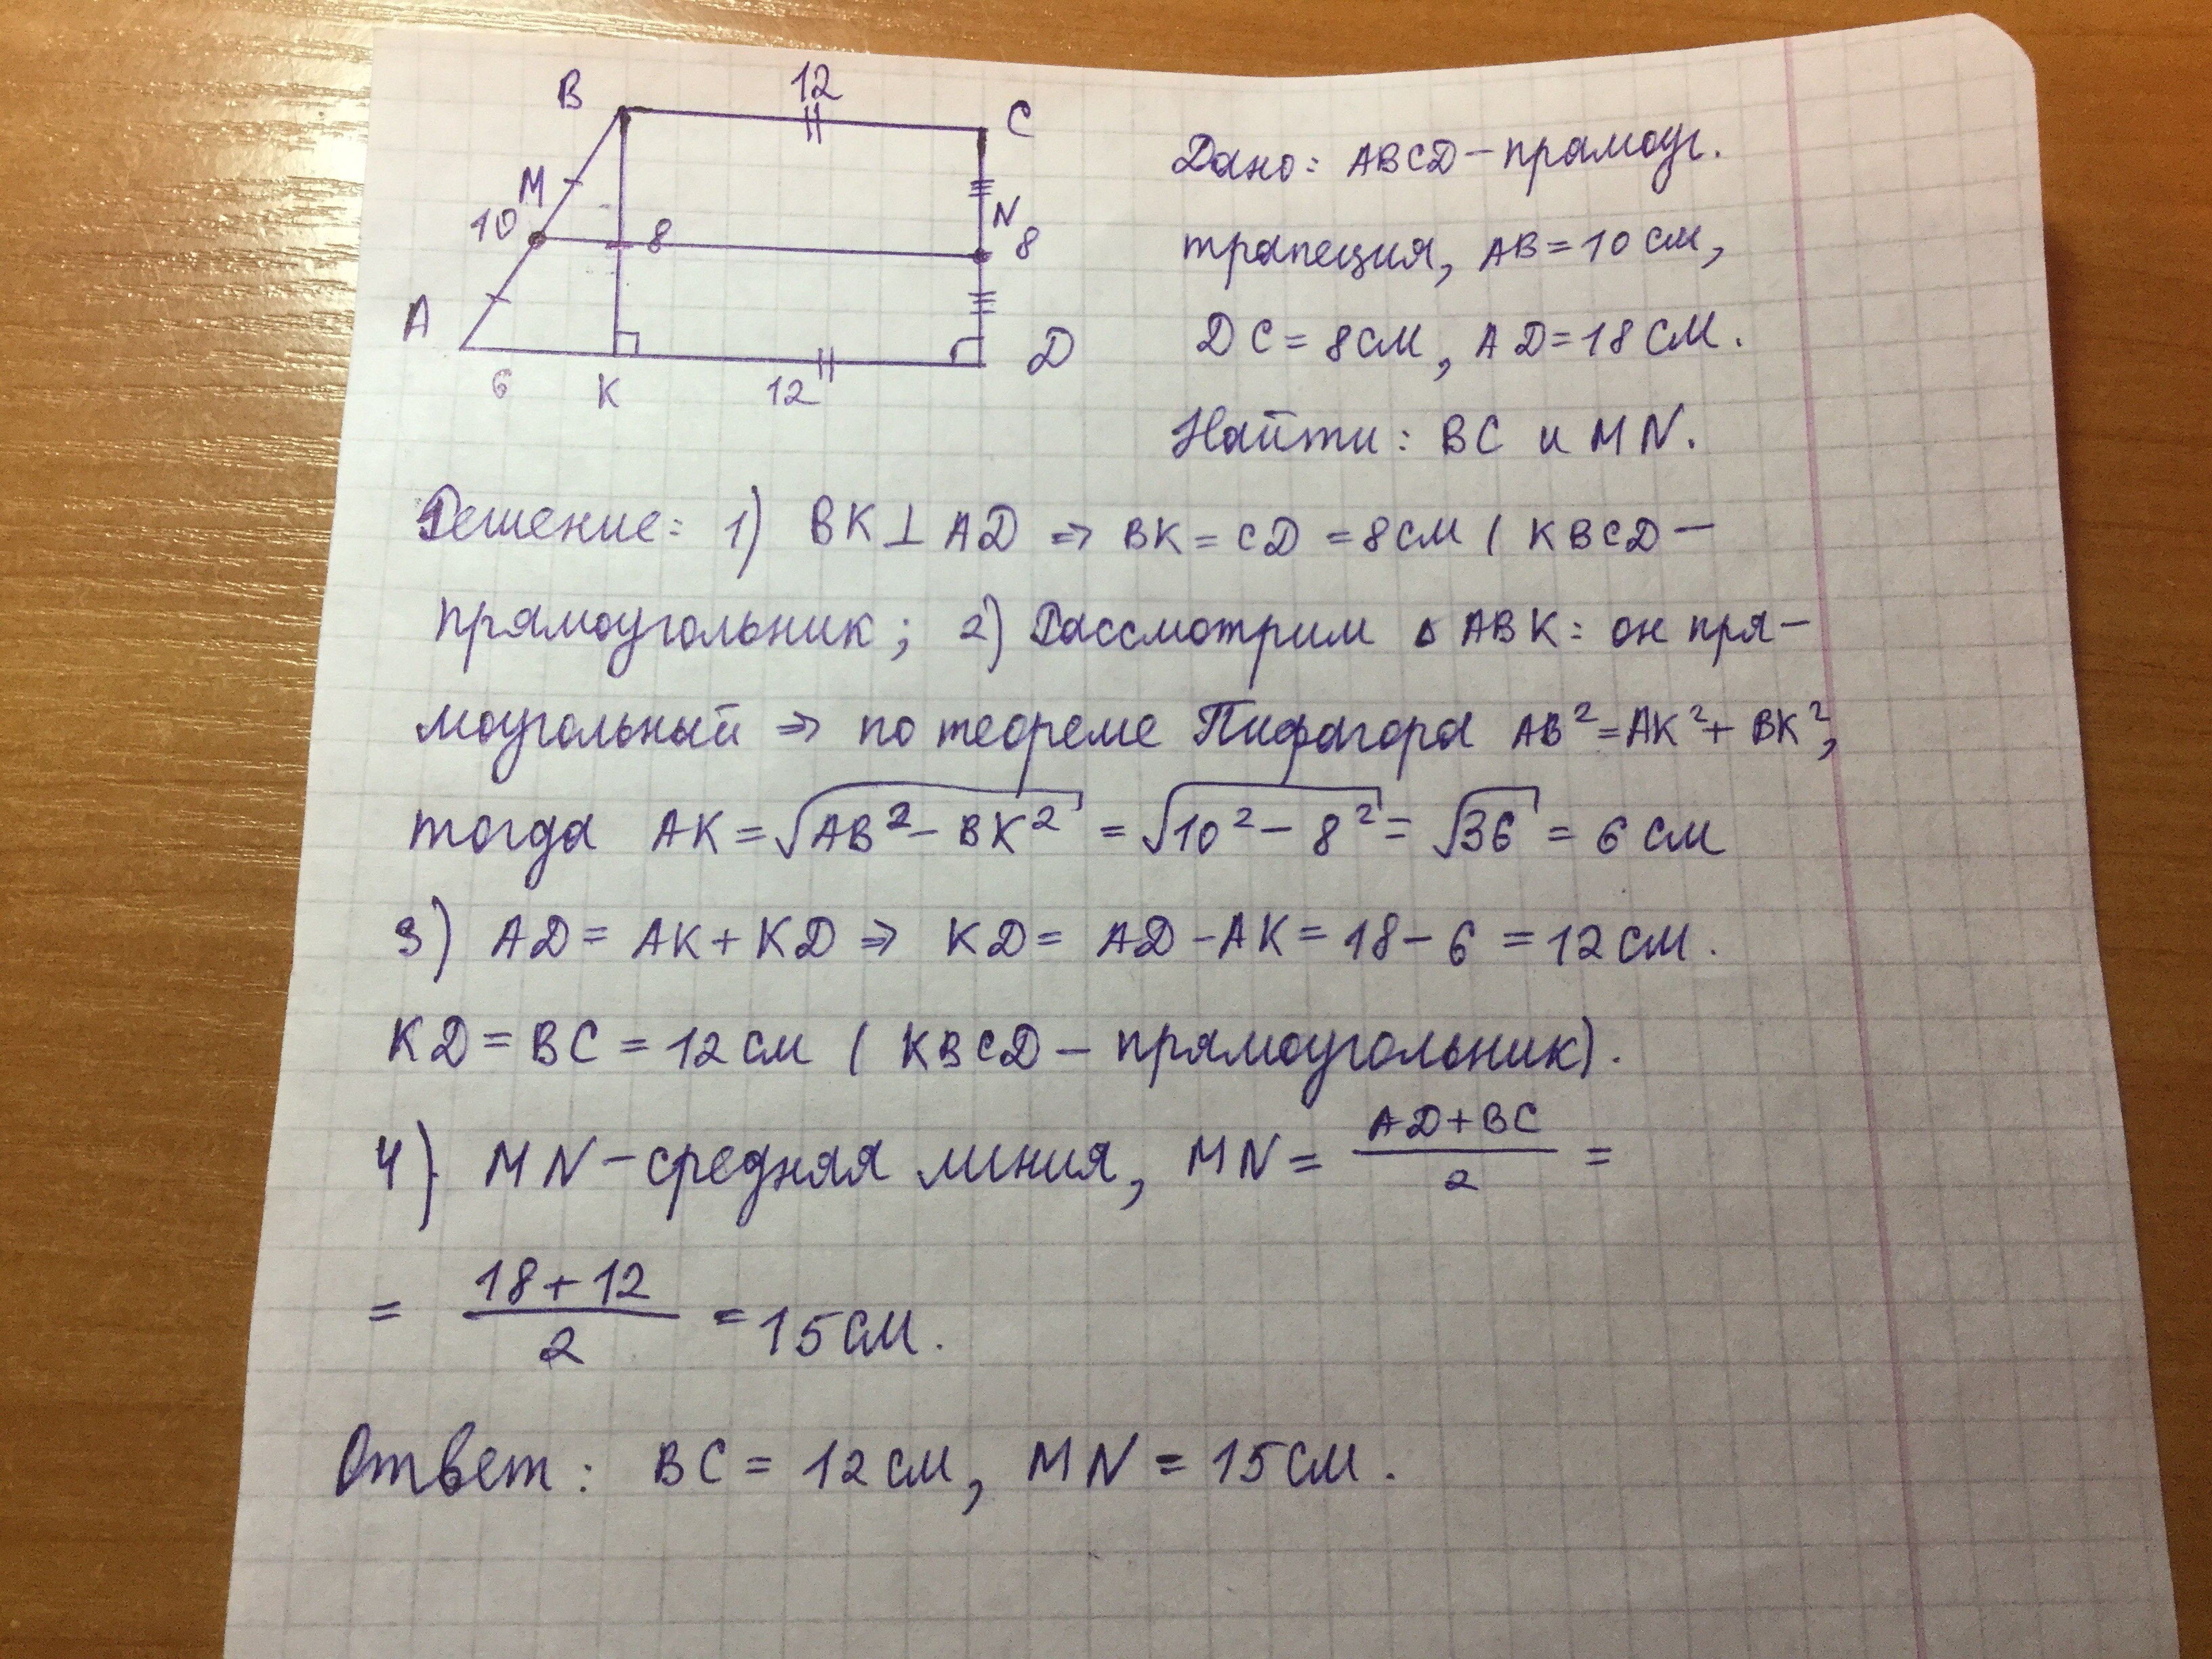 B 12 C
M N
10 8 8
A D
6 K 12
Дано: ABCD – прямоуг.
трапеция, AB = 10 см,
DC = 8 см, AD = 18 см.
Найти: BC и MN.
Решение: 1) BK ⊥ AD ⇒ BK = CD = 8 см ( KBCD –
прямоугольник; 2) Рассмотрим △ ABK: он пря–
моугольный ⇒ по теореме Пифагора AB² = AK² + BK²,
тогда AK = √(AB² – BK²) = √(10² – 8²) = √36 = 6 см
3) AD = AK + KD ⇒ KD = AD – AK = 18 – 6 = 12 см.
KD = BC = 12 см ( KBCD – прямоугольник).
4) MN – средняя линия, MN = (AD + BC)/2 =
= (18 + 12)/2 = 15 см.
Ответ: BC = 12 см, MN = 15 см.